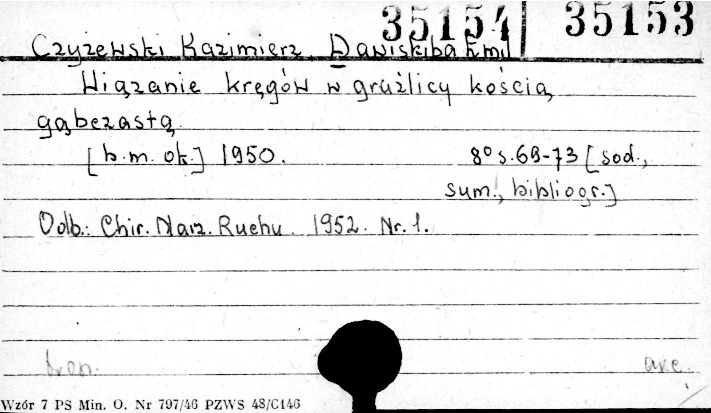 35154 35153
Czyżewski Kazimierz, Daniskiba Emil
Wiązanie kręgów w gruźlicy kością
gąbczastą
[b.m. ok.] 1950. 8° s. 69-73 [sod.,
sum., bibliogr.]
Odb.: Chir. Narz. Ruchu. 1952. Nr. 1.
Wzór 7 PS Min. O. Nr 797/46 PZWS 48/C146